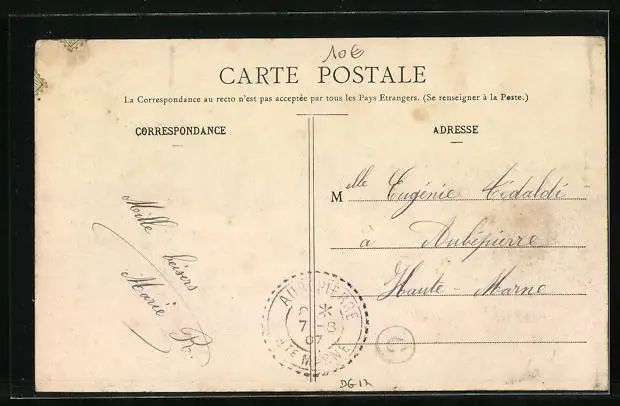 10€
CARTE POSTALE
La Correspondance au recto n'est pas acceptée par tous les Pays Etrangers. (Se renseigner à la Poste.)
CORRESPONDANCE
ADRESSE
Mille beisers
Marie R.
Melle Eugénie Tédaldi
à Aubépierre
Haute-Marne
AUBEPIERRE
7-8
07
HTE MARNE
DG12